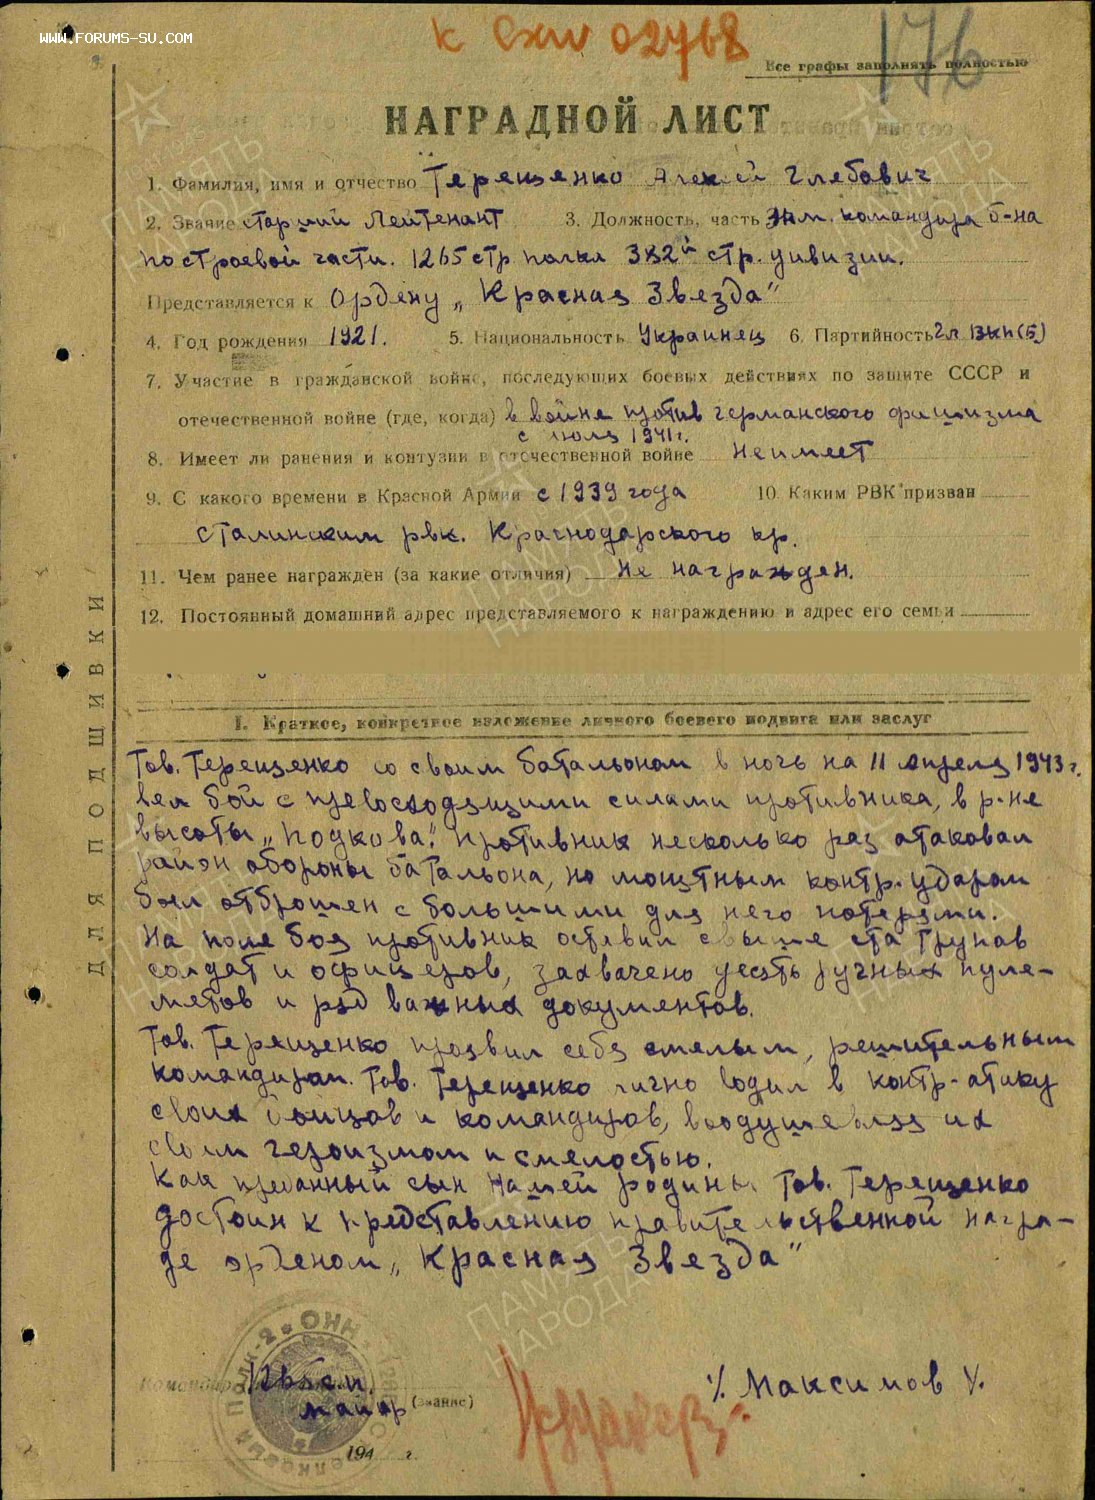 WWW.FORUMS-SU.COM
к 02768
176
Все графы заполнять полностью
НАГРАДНОЙ ЛИСТ
1. Фамилия, имя и отчество Терещенко Алексей Глебович
2. Звание старший Лейтенант 3. Должность, часть Зам. командира б-на
по строевой части. 1265 стр. полка 382й стр. дивизии.
Представляется к Ордену „Красная Звезда"
4. Год рождения 1921. 5. Национальность Украинец 6. Партийность Чл ВКП(б)
7. Участие в гражданской войне, последующих боевых действиях по защите СССР и
отечественной войне (где, когда) в войне против германского фашизма
с июля 1941 г.
8. Имеет ли ранения и контузии в отечественной войне Не имеет
9. С какого времени в Красной Армии с 1939 года 10. Каким РВК призван
Сталинским рвк. Краснодарского кр.
11. Чем ранее награжден (за какие отличия) Не награжден.
12. Постоянный домашний адрес представляемого к награждению и адрес его семьи
ДЛЯ ПОДШИВКИ
I. Краткое, конкретное изложение личного боевого подвига или заслуг
Тов. Терещенко со своим батальоном в ночь на 11 апреля 1943 г.
вел бой с превосходящими силами противника, в р-не
высоты „Подкова". Противник несколько раз атаковал
район обороны батальона, но мощным контр-ударом
был отброшен с большими для него потерями.
На поле боя противник оставил свыше ста трупов
солдат и офицеров, захвачено десять ручных пуле-
метов и ряд важных документов.
Тов. Терещенко проявил себя смелым, решительным
командиром. Тов. Терещенко лично водил в контр-атаку
своих бойцов и командиров, воодушевляя их
своим героизмом и смелостью.
Как преданный сын нашей родины Тов. Терещенко
достоин к представлению правительственной награ-
де орденом „Красная Звезда"
Командир 1265 с.п.
майор (звание) /Максимов/.
194 г.
ПАМЯТЬ НАРОДА